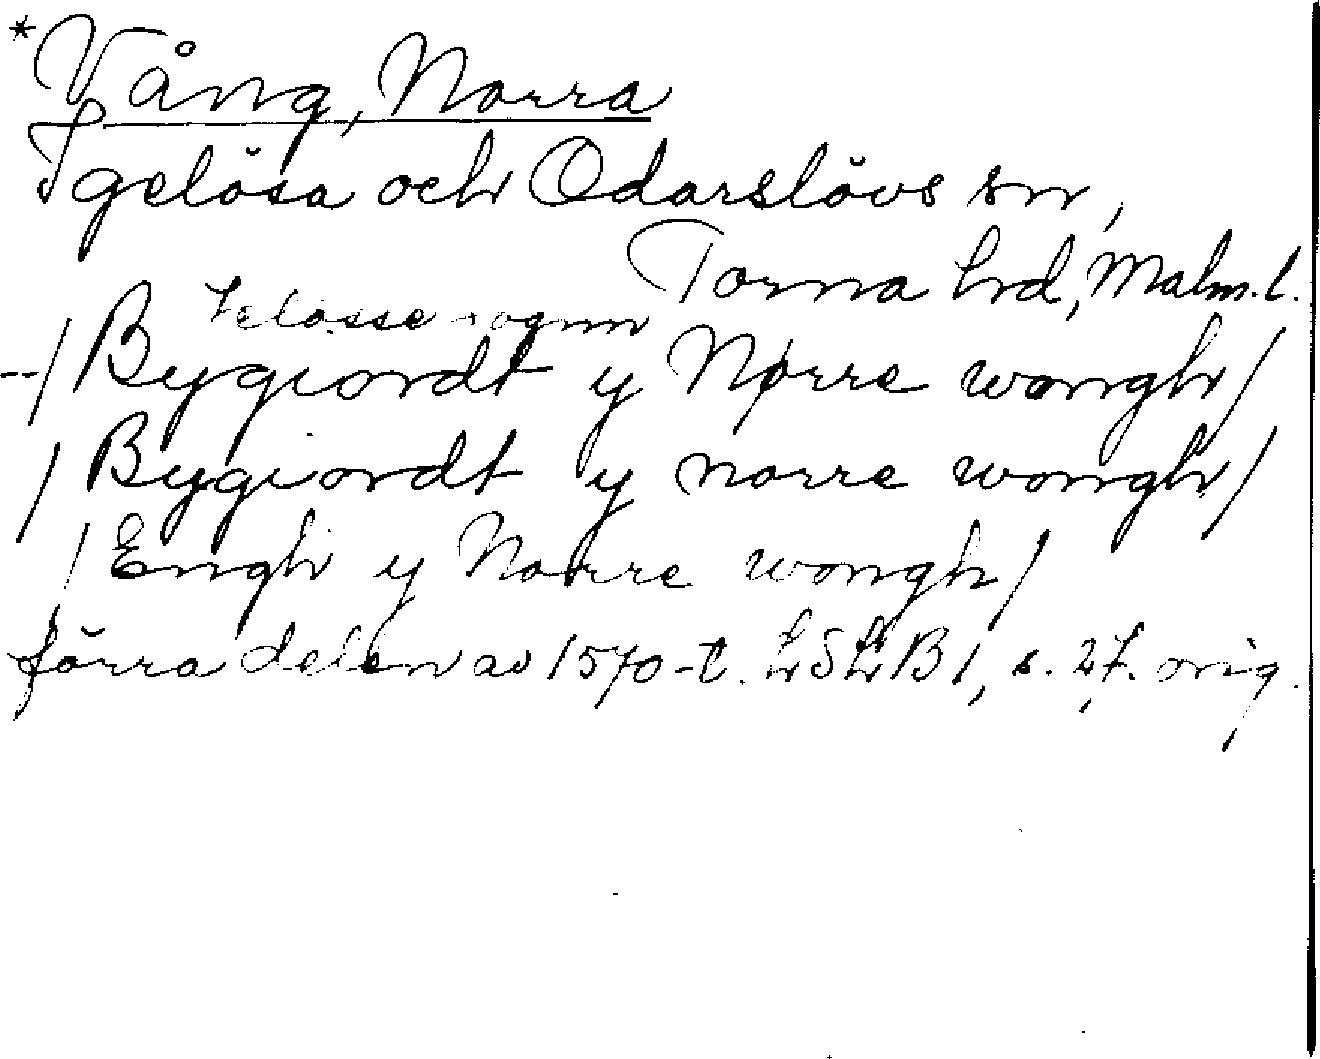 *Vång, Norra
Igelösa och Odarslövs snr,
Torna hrd, Malm.l.
Jelösse sognn
--/Bygiordt y Nørre wongh/
/Bygiordt y norre wongh/
/Engh y Norre wongh/
förra delen av 1570-t. LSLB1, s. 27. orig.